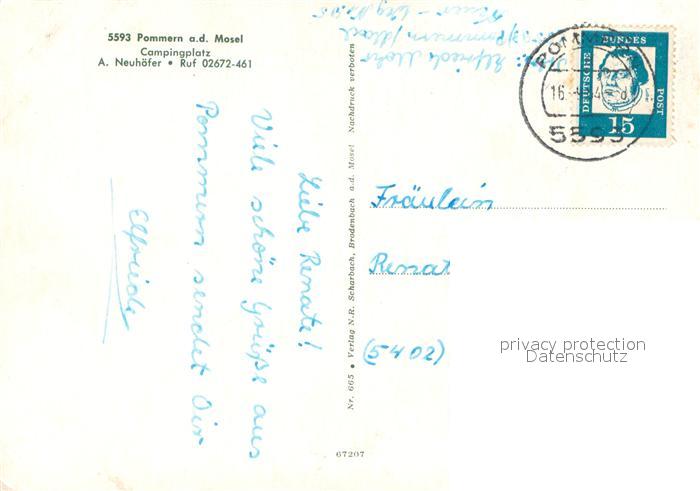 5593 Pommern a.d. Mosel
Campingplatz
A. Neuhöfer • Ruf 02672-461
Liebe Renate!
Viele schöne Grüße aus
Pommern sendet Dir
Elfriede
Nr. 665 • Verlag N.R. Scharbach, Brodenbach a.d. Mosel Nachdruck verboten
67207
Elfriede
Pommern /Mosel
DEUTSCHE BUNDES POST
15
POMM
16
5593
Fräulein
Renat
(5402)
privacy protection
Datenschutz